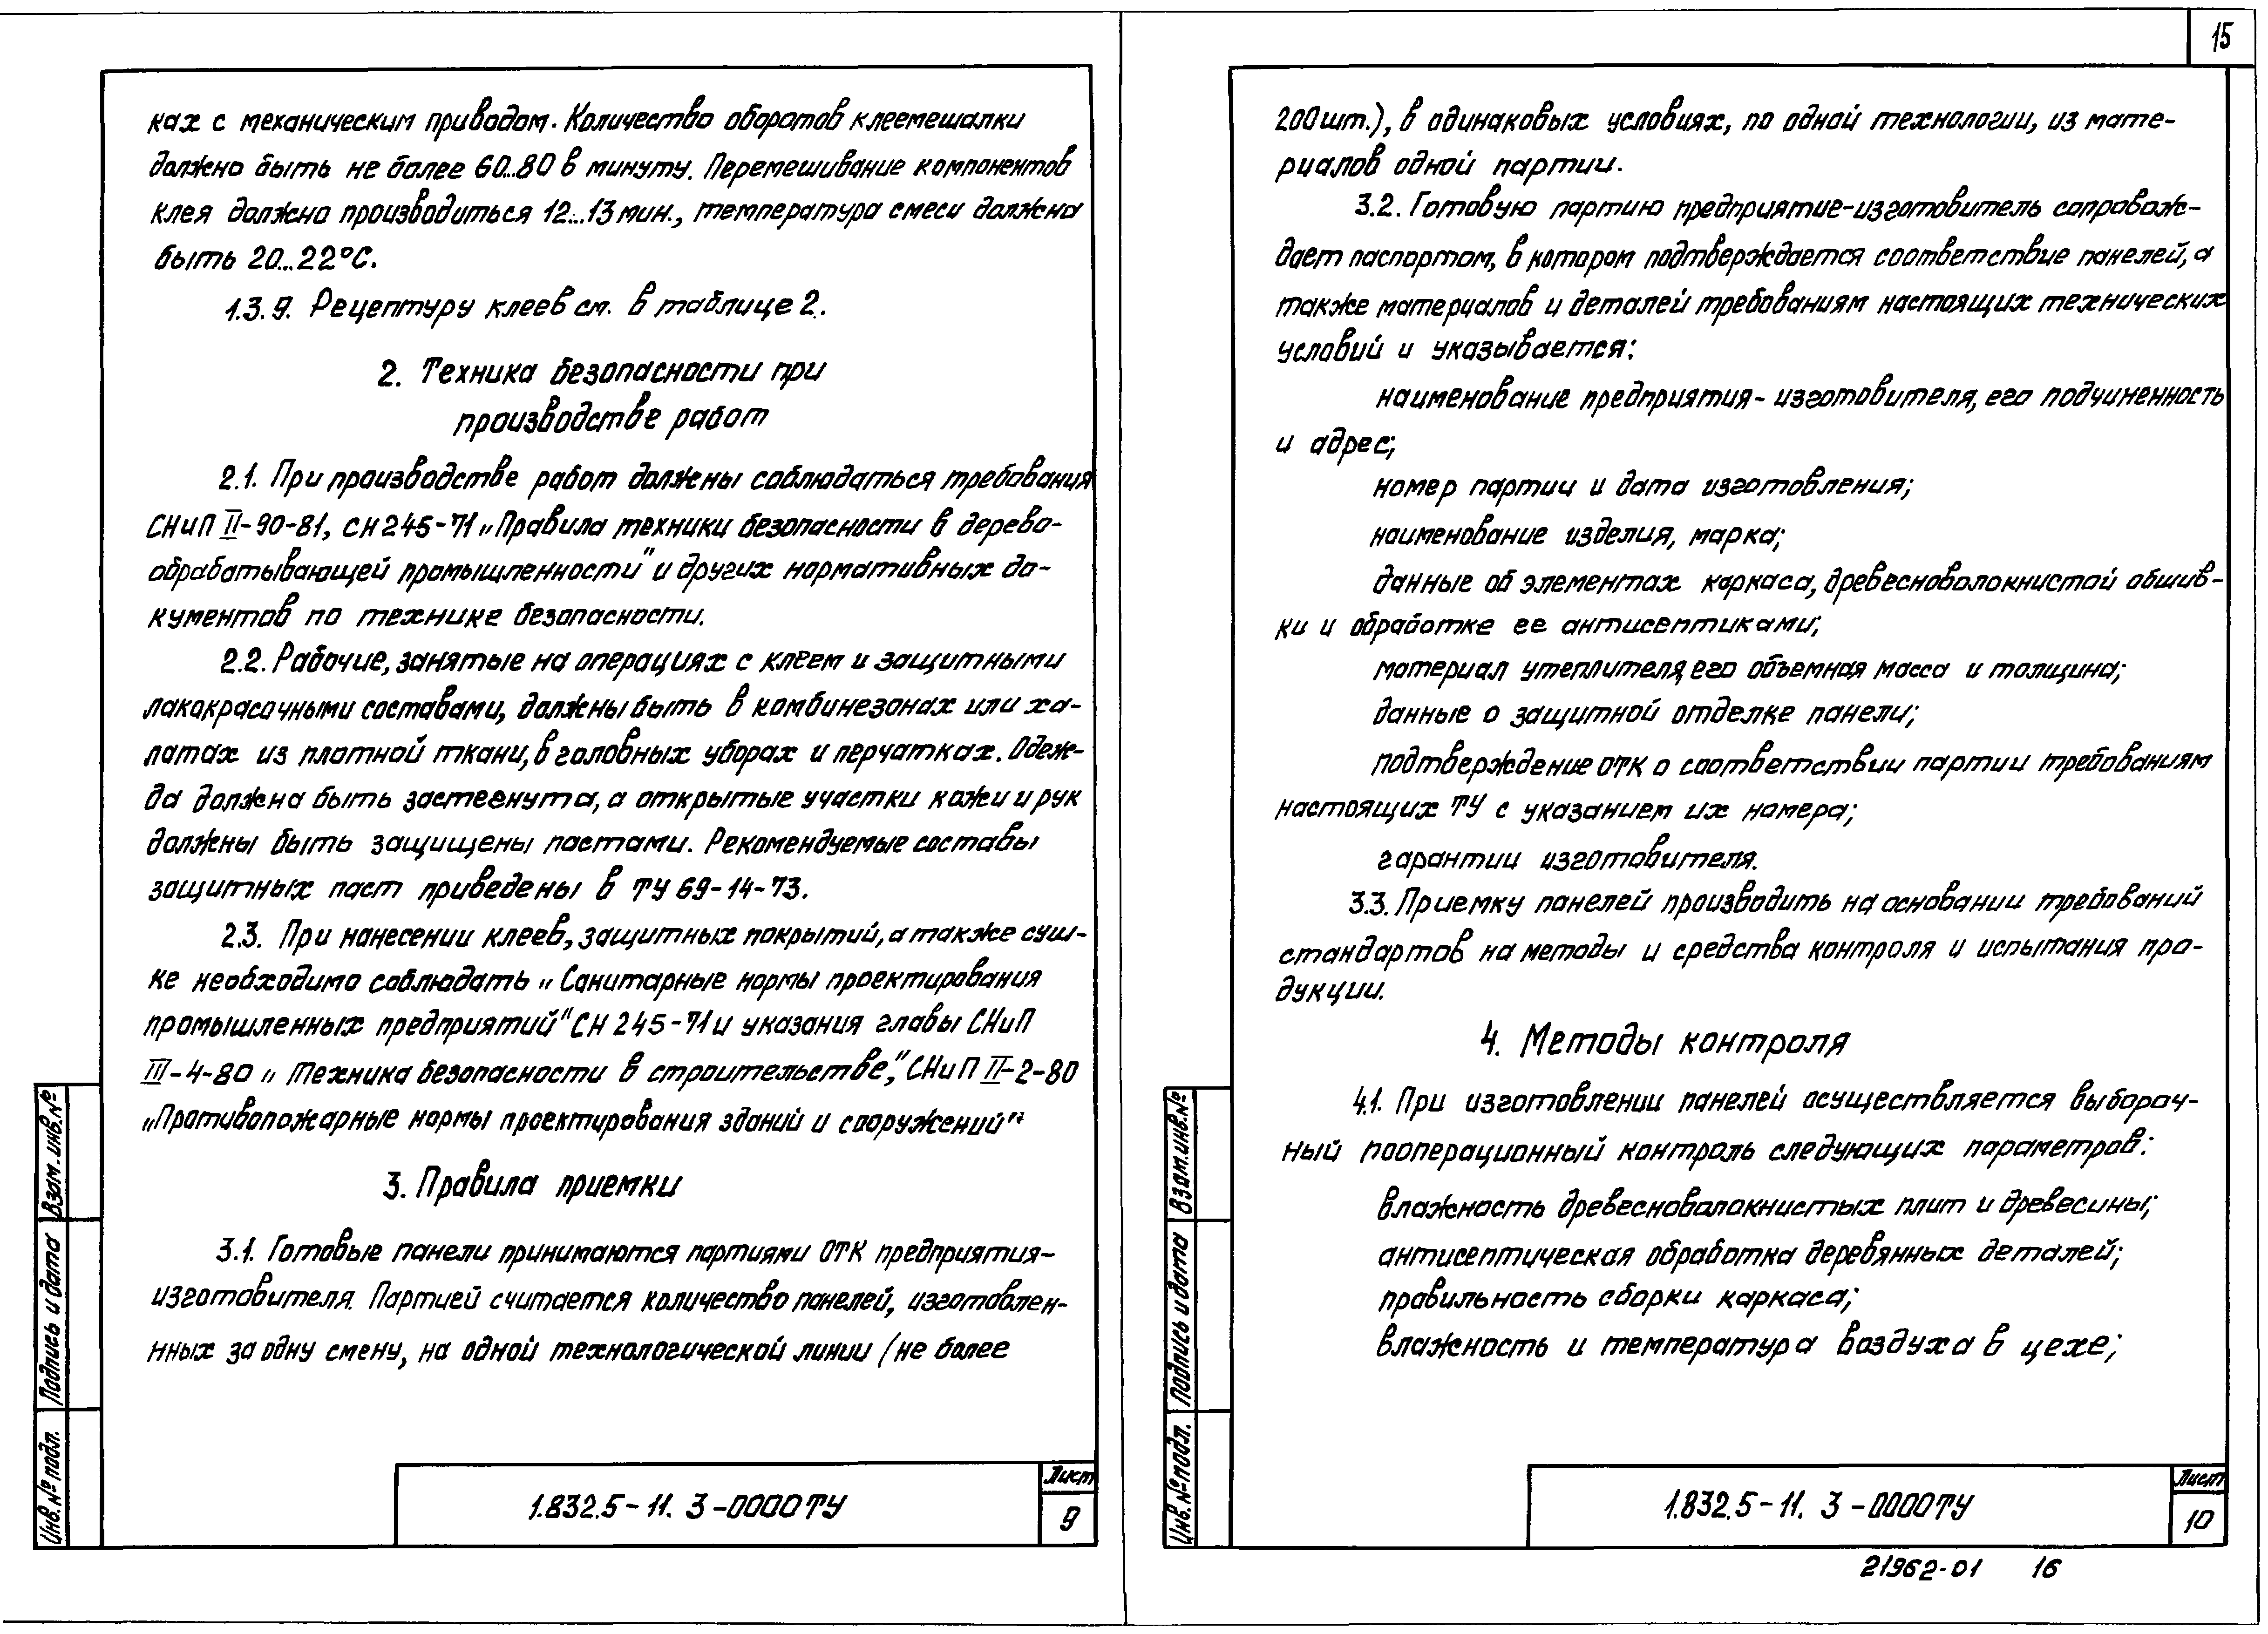 ках с механическим приводом. Количество оборотов клеемешалки
должно быть не более 60...80 в минуту. Перемешивание компонентов
клея должно производиться 12...13 мин., температура смеси должна
быть 20...22°С.
1.3.9. Рецептуру клеев см. в таблице 2.
2. Техника безопасности при
производстве работ
2.1. При производстве работ должны соблюдаться требования
СНиП II-90-81, СН 245-71 „Правила техники безопасности в дерево-
обрабатывающей промышленности" и других нормативных до-
кументов по технике безопасности.
2.2. Рабочие, занятые на операциях с клеем и защитными
лакокрасочными составами, должны быть в комбинезонах или ха-
латах из плотной ткани, в головных уборах и перчатках. Одеж-
да должна быть застегнута, а открытые участки кожи и рук
должны быть защищены пастами. Рекомендуемые составы
защитных паст приведены в ТУ 69-14-73.
2.3. При нанесении клеев, защитных покрытий, а также суш-
ке необходимо соблюдать „Санитарные нормы проектирования
промышленных предприятий" СН 245-71 и указания главы СНиП
III-4-80 „Техника безопасности в строительстве," СНиП II-2-80
„Противопожарные нормы проектирования зданий и сооружений"
3. Правила приемки
3.1. Готовые панели принимаются партиями ОТК предприятия-
изготовителя. Партией считается количество панелей, изготовлен-
нных за одну смену, на одной технологической линии (не более
Взам. инв. №
Подпись и дата
Инв. № подл.
1.832.5-11. 3-0000ТУ
Лист
9
15
200 шт.), в одинаковых условиях, по одной технологии, из мате-
риалов одной партии.
3.2. Готовую партию предприятие-изготовитель сопровож-
дает паспортом, в котором подтверждается соответствие панелей, а
также материалов и деталей требованиям настоящих технических
условий и указывается:
наименование предприятия-изготовителя, его подчиненность
и адрес;
номер партии и дата изготовления;
наименование изделия, марка;
данные об элементах каркаса, древесноволокнистой обшив-
ки и обработке ее антисептиками;
материал утеплителя, его объемная масса и толщина;
данные о защитной отделке панели;
подтверждение ОТК о соответствии партии требованиям
настоящих ТУ с указанием их номера;
гарантии изготовителя.
3.3. Приемку панелей производить на основании требований
стандартов на методы и средства контроля и испытания про-
дукции.
4. Методы контроля
4.1. При изготовлении панелей осуществляется выбороч-
ный пооперационный контроль следующих параметров:
влажность древесноволокнистых плит и древесины;
антисептическая обработка деревянных деталей;
правильность сборки каркаса;
влажность и температура воздуха в цехе;
Взам. инв. №
Подпись и дата
Инв. № подл.
1.832.5-11. 3-0000ТУ
Лист
10
21962-01 16